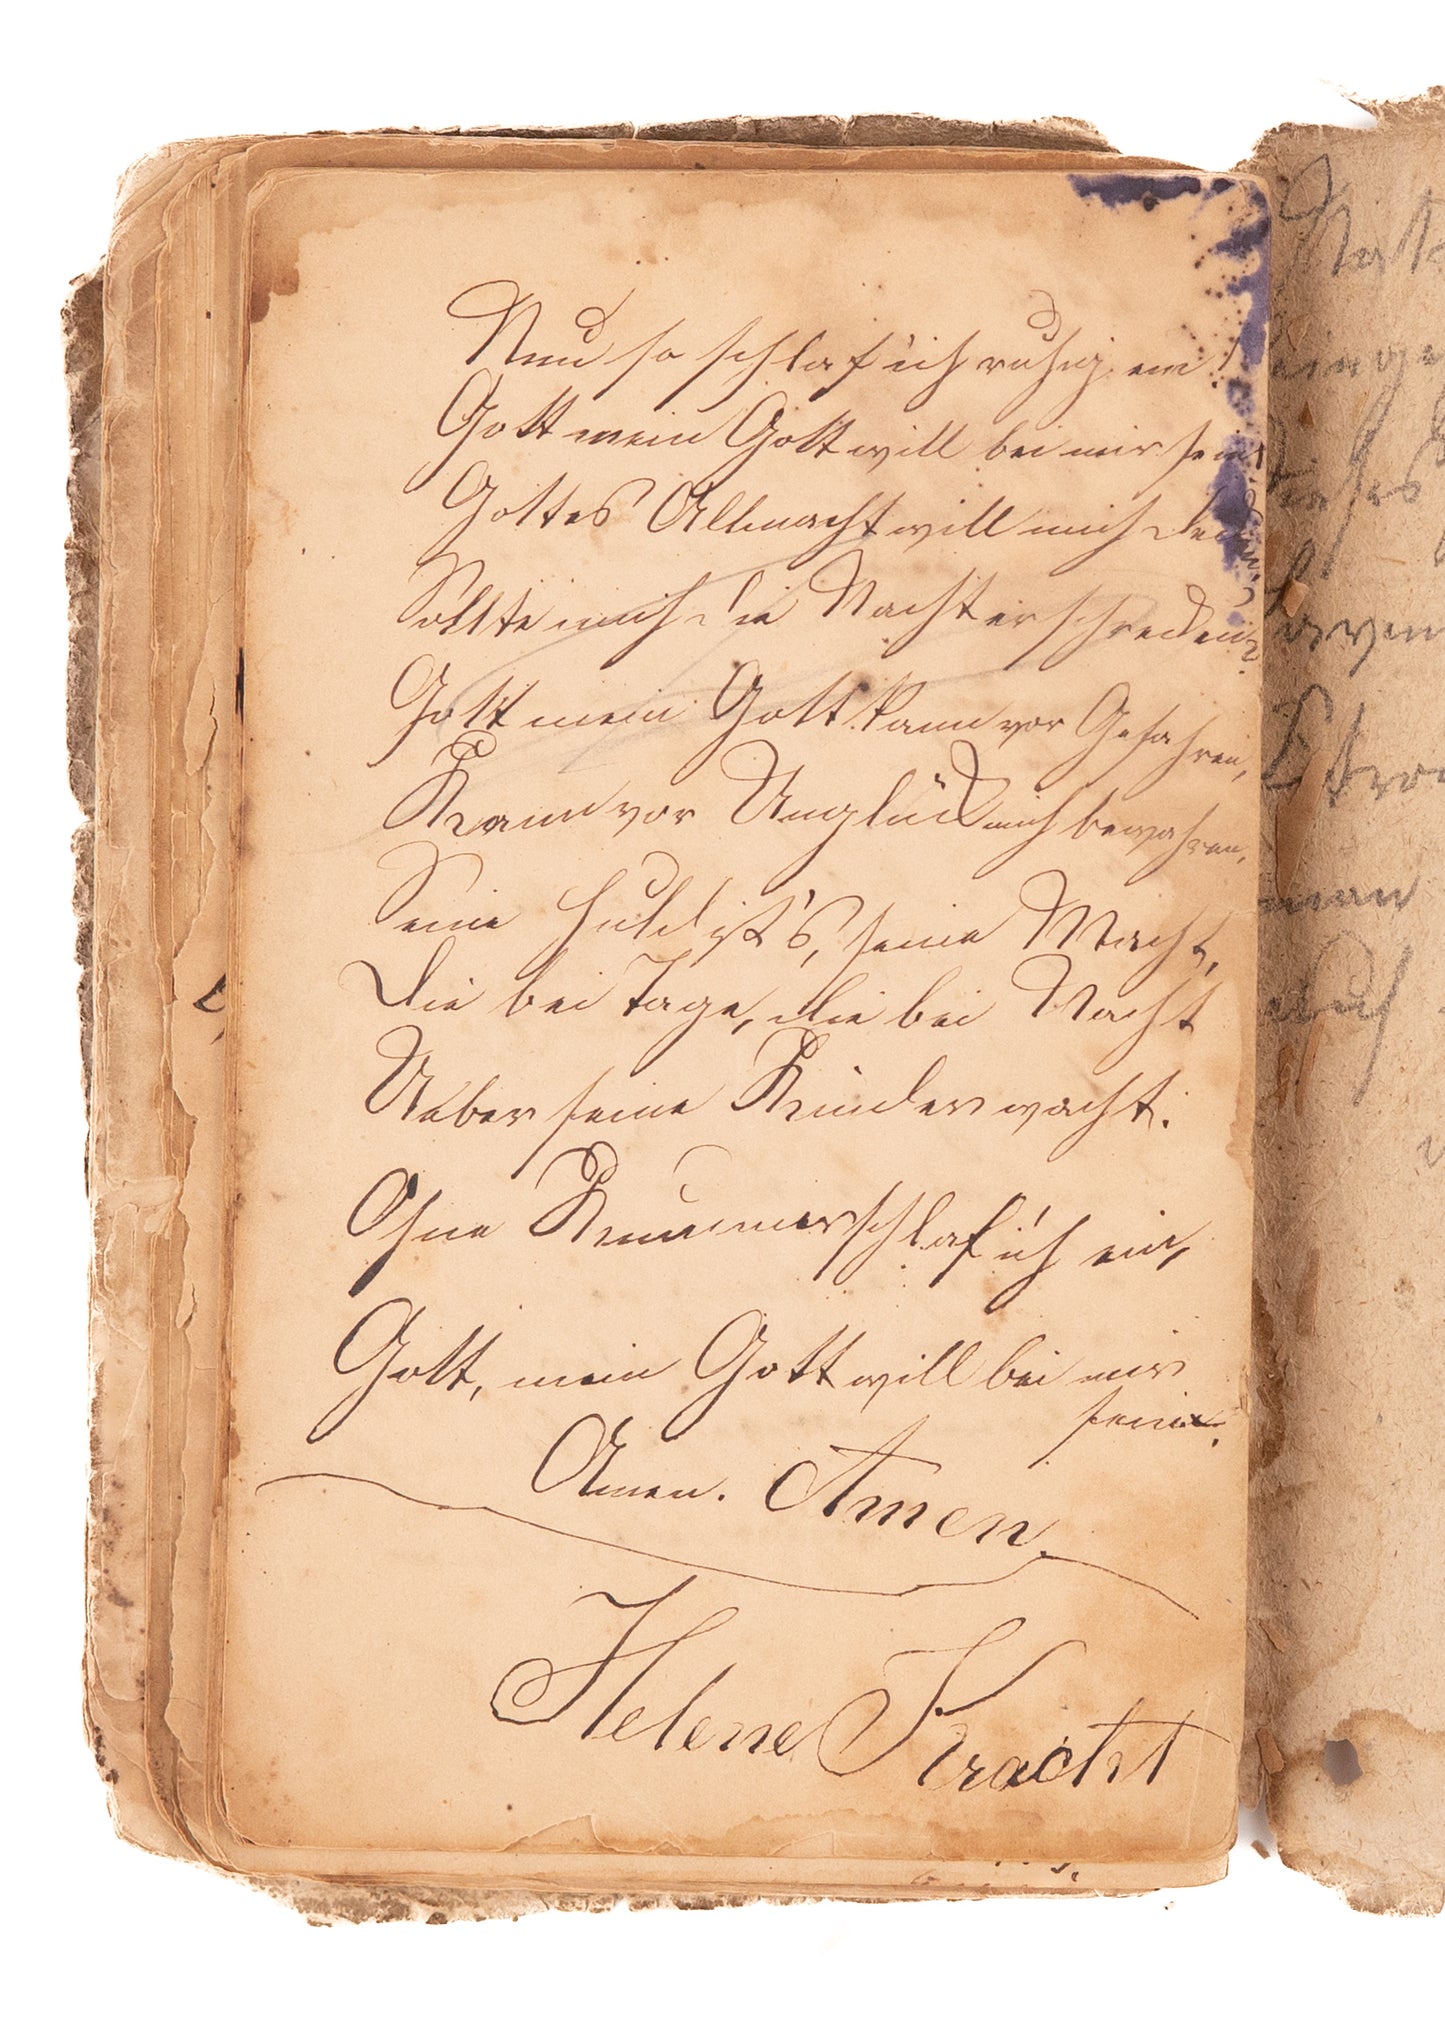 Nun so schlaf ich ruhig ein!
Gott mein Gott will bei mir sein
Gottes Allmacht will mich
Sollte mich die Nacht erschrecken?
Gott mein Gott kann vor Gefahren,
Kann vor Unglück mich bewahren,
Seine Huld ist's, seine Macht,
Die bei Tage, die bei Nacht
Ueber seine Kinder wacht.
Ohne Kummer schlaf' ich ein,
Gott, mein Gott will bei mir
sein.
Amen. Amen.
Helene Kracht
man